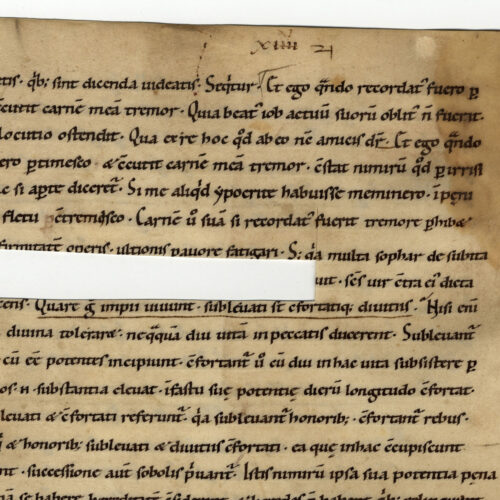 xiiii
etis · q̅b; sint dicenda uideatis · Seq̅tur · Et ego q̅ndo recordatꝰ fuero ꝑ
c̅cutit carnē meā tremor · Quia beatꝰ iob actuū suorū oblitꝰ n̅ fuerit ·
locutio ostendit · Qua ex re hoc q̅d ab eo n̅e amicis dr̅ · Et ego q̅ndo
ero ꝑtimesco · & c̅cutit carnē meā tremor · c̅stat nimirū q̅d ꝑ irrisi
ac si aꝑte diceret᷑ · Si me aliq̅d ypocrite habuisse meminero · i̅
fletu c̅tremisco · Carnē u̅ suā si recordatꝰ fuerit tremore ꝑhibe
firmitatē oneris · ultionis pauore fatigari · S; q̅a multa sophar de subita
uit · sēs uir c̅tra eiꝰ dicta
cens · Quare g̅ impii uiuunt · subleuati st̅ c̅fortatiq; diuitiis · Nisi enī
diuina tolerare · neq̅quā diu uitā in peccatis ducerent · Subleuant᷑
cū ēe potentes incipiunt · c̅fortant᷑ u̅ cū diu in hac uita subsistere ꝑ
os · n̅ substantia eleuat · i̅ fastu suę potentię dierū longitudo c̅fortat ·
leuati & c̅fortati referunt᷑ · q̅a subleuant᷑ honorib; · c̅fortant᷑ rebus ·
& honorib; subleuati & diuitiis c̅fortati · ea que in hac c̅cupiscunt
nt · successione aut̅ sobolis p̅uant᷑ · Istis nimirū ipsa sua potentia pęna
se habere